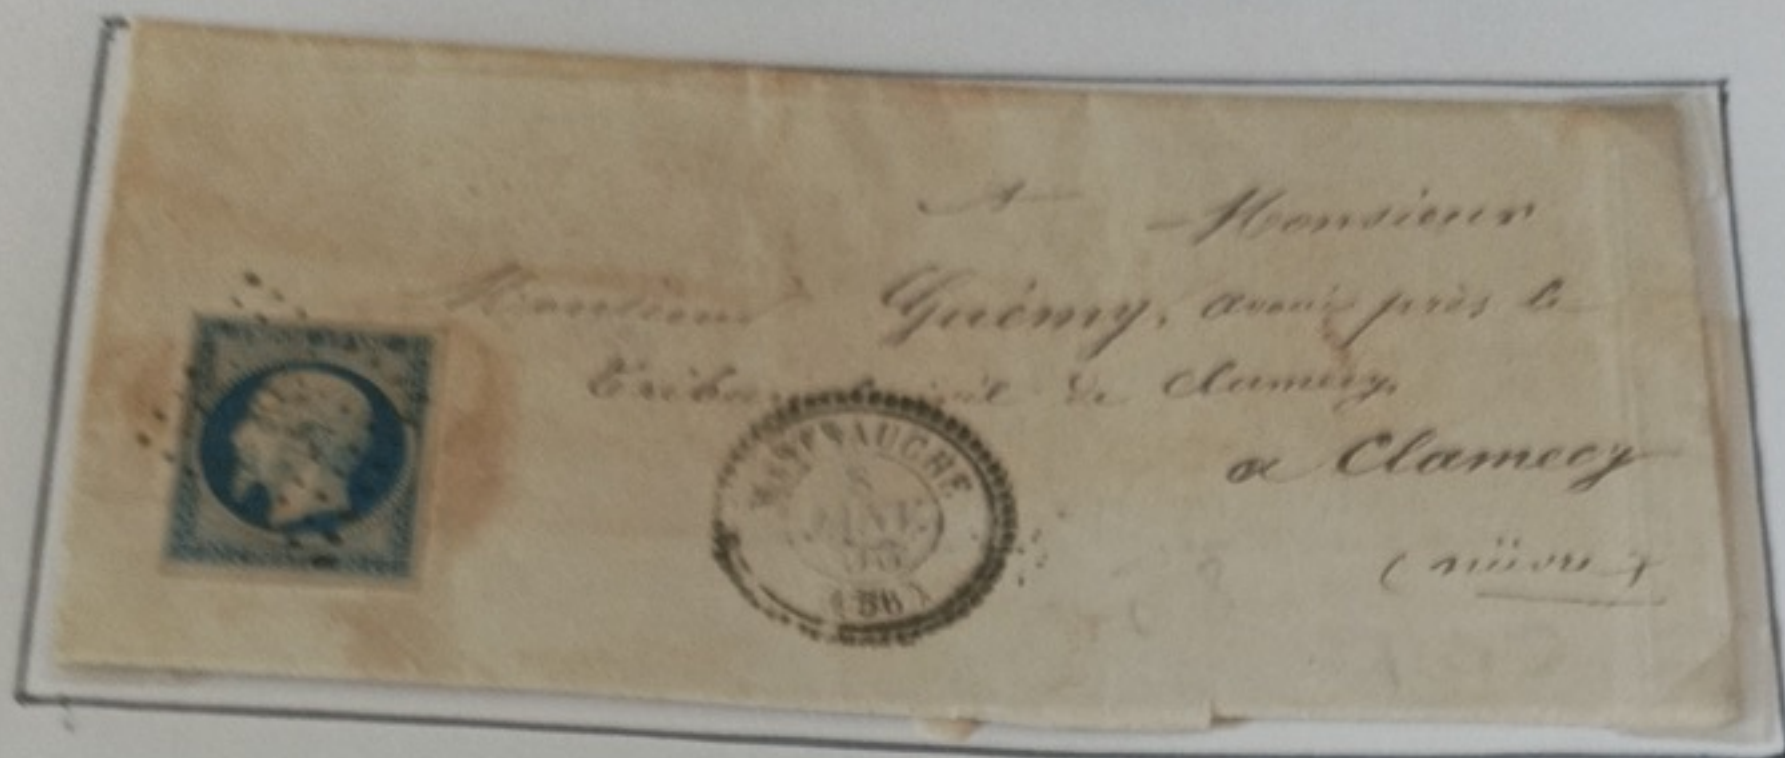 A Monsieur
Monsieur Guémy, avoué près le
Tribunal civil de Clamecy,
a Clamecy
(nièvre)
MONTSAUCHE
8
JANV.
(56)